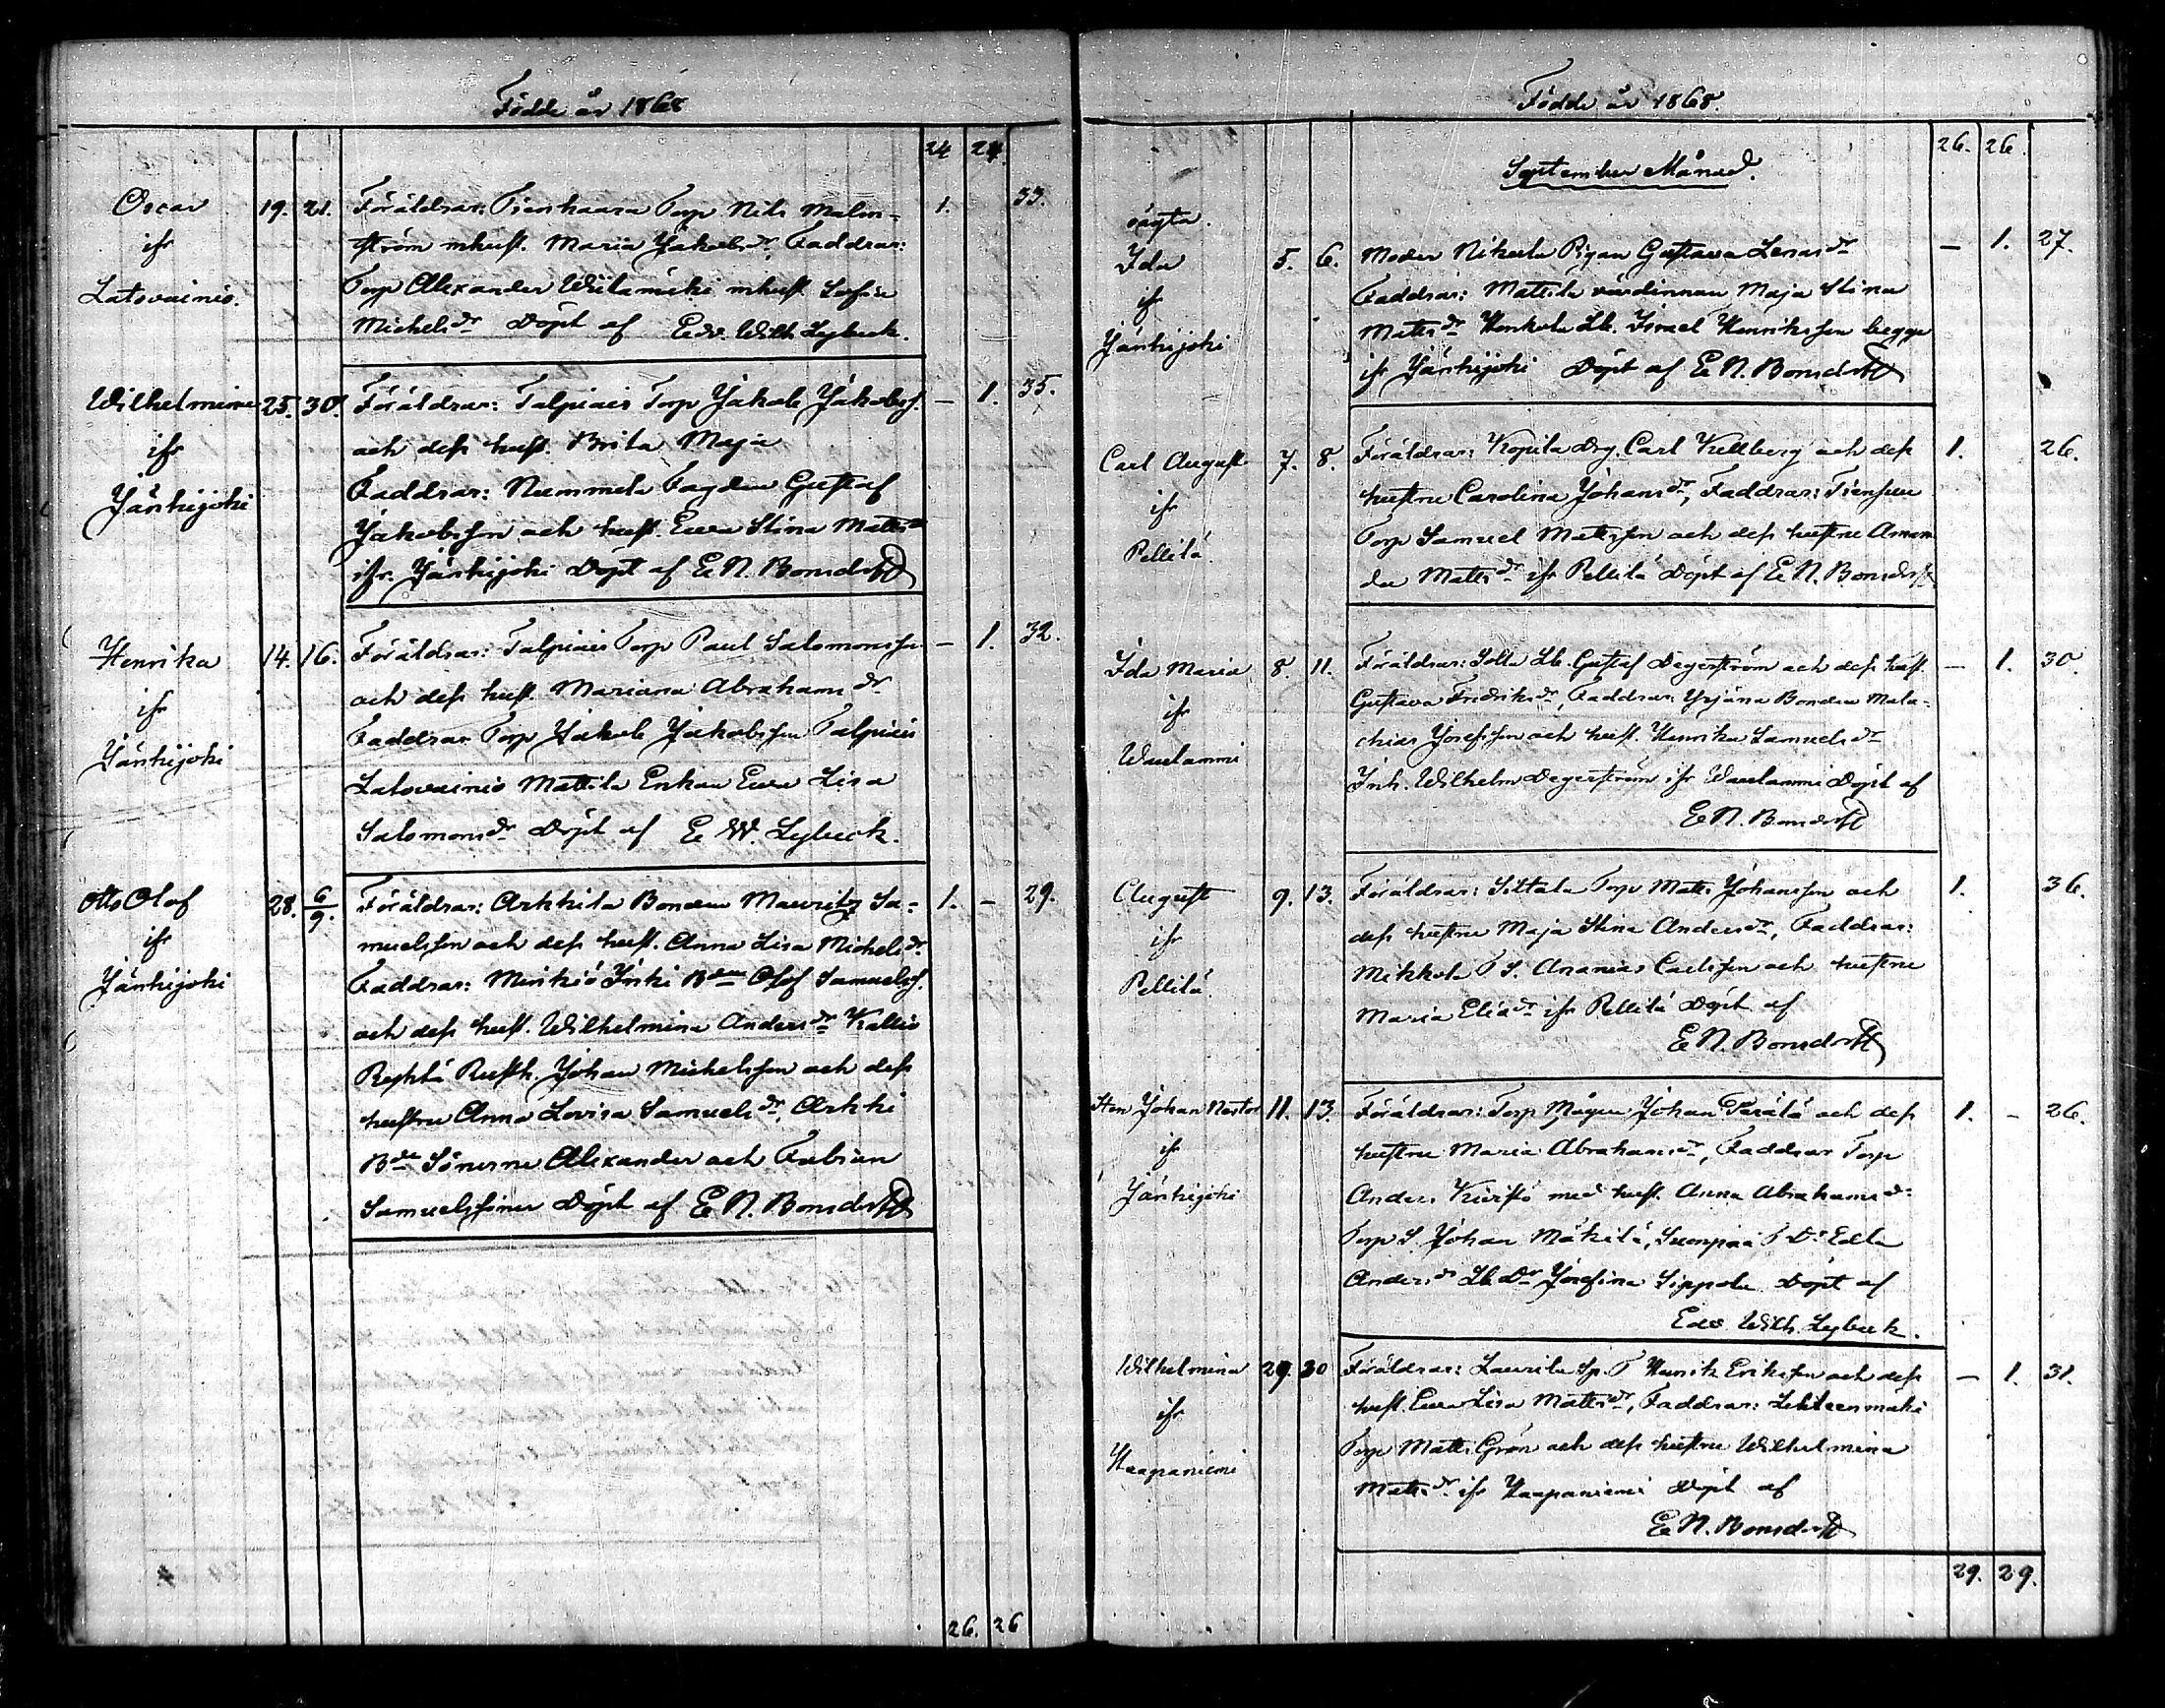 Födde år 1868
24 24.
Oscar 19. 21. Föräldrar: Tienhaara Torp Nils Malm- 1. 33.
ifr ström mhust. Maria Jakobsdr, Faddrar:
Latovainio. Torp Alexander Wiitamäki mhust Sofia
Michelsdr Döpt af Edv. Wilh Lybeck.
Wilhelmina 25. 30. Föräldrar: Talpiais Torp Jakob Jakobss. — 1. 35.
ifr och dess hust. Brita Maja
Jänhijoki Faddrar: Nummela Gustaf
Jakobsson och hust. Eva Stina Mattsdr
ifr. Jänhijoki Döpt af E N. Bonsdorff
Henrika 14. 16. Föräldrar: Talpiais Torp Paul Salomonsson — 1. 32.
ifr och dess hust. Mariana Abrahamsdr
Jänhijoki Faddrar Torp Jakob Jakobsson Talpiais
Latovainio Mattila Enkan Eva Lisa
Salomonsdr Döpt af E W. Lybeck.
Otto Olof 28. 6/9. Föräldrar: Arkkila Bonden Mauritz Sa- 1. — 29.
ifr muelsson och dess hust. Anna Lisa Michelsdr.
Jänhijoki Faddrar: Minkiö Inki Bden Olof Samuelss.
och dess hust. Wilhelmina Andersdr Kallio
Rusth. Johan Michelsson och dess
hustru Anna Lovisa Samuelsdr, Arkki
Bde Sönerne Alexander och Fabian
Samuelssöner Döpt af E N. Bonsdorff
26. 26
Födde år 1868.
26. 26.
September Månad.
oägta.
Ida 5. 6. Moder Nikula Pigan Gustava Lenasdr — 1. 27.
ifr Faddrar: Mattila värdinnan Maja Stina
Jänhijoki Mattsdr Henkola Lb. Israel Henriksson begge
ifr Jänhijoki Döpt af E N. Bonsdorff
Carl August 7. 8. Föräldrar: Kopila Drg. Carl Kellberg och dess 1. 26.
ifr hustru Carolina Johansdr, Faddrar:
Pellilä. Torp Samuel Mattsson och dess hustru Aman-
da Mattsdr ifr Pellilä Döpt af E N. Bonsdorff
Ida Maria 8. 11. Föräldrar: Lb. Gustaf Degerström och dess hust. — 1. 30.
ifr Gustava Fredriksdr, Faddrar: Yrjänä Bonden Mala-
Waulammi chias Josefsson och hust. Henrika Samuelsdr
Inh. Wilhelm Degerström ifr Waulammi Döpt af
E N. Bonsdorff
August 9. 13. Föräldrar: Siltala Torp Matts Johansson och 1. 36.
ifr dess hustru Maja Stina Andersdr, Faddrar:
Pellilä. Mikkola T S. Ananias Carlsson och hustru
Maria Eliædr ifr Pellilä Döpt af
E N. Bonsdorff
Sten Johan Nestor 11. 13. Föräldrar: Torp Mågen Johan Perälä och dess 1. — 26.
ifr hustru Maria Abrahamsdr, Faddrar Torp
Jänhijoki Anders med hust. Anna Abrahamsdr
Torp S. Johan Mäkilä, Suonpää T Dr Edla
Andersdr Lb Dr Josefina Sippola Döpt af
Edv. Wilh. Lybeck.
Wilhelmina 29. 30 Föräldrar: Laurila Sp. T Henrik Eriksson och dess — 1. 31.
ifr hust. Eva Lisa Mattsdr, Faddrar: Lehteenmäki
Haapaniemi Torp Matts Grön och dess hustru Wilhelmina
Mattsdr ifr Haapaniemi Döpt af
E N. Bonsdorff
29. 29.